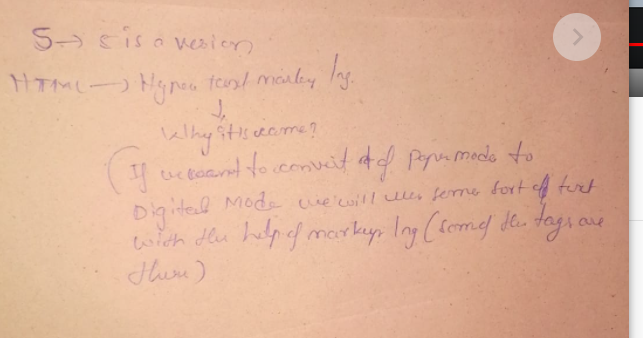 5 → 5 is a version
HTML → Hyper text markup lng.
↓
Why it is came?
(If we want to convert of paper mode to
Digital Mode we will use some sort of text
with the help of markup lng (some of the tags are
there)